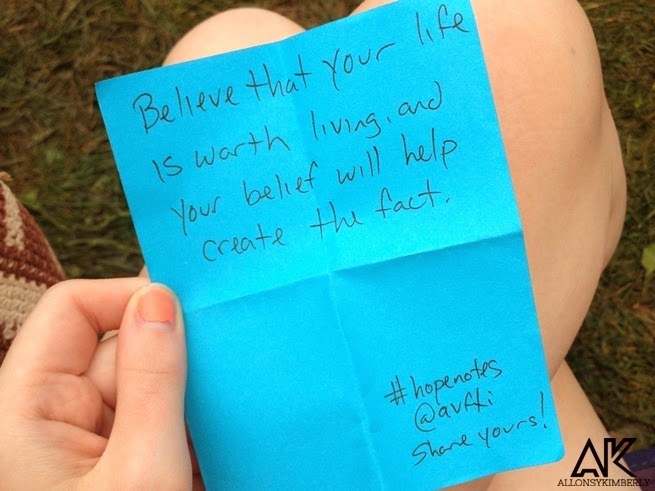 Believe that your life
is worth living, and
your belief will help
create the fact.
#hopenotes
@avfti
Share yours!
AK
ALLONSYKIMBERLY